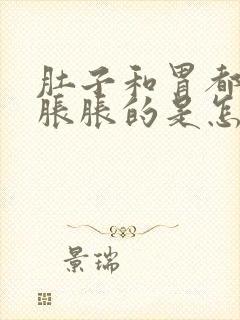 肚子和胃都
胀胀的是怎
景瑞